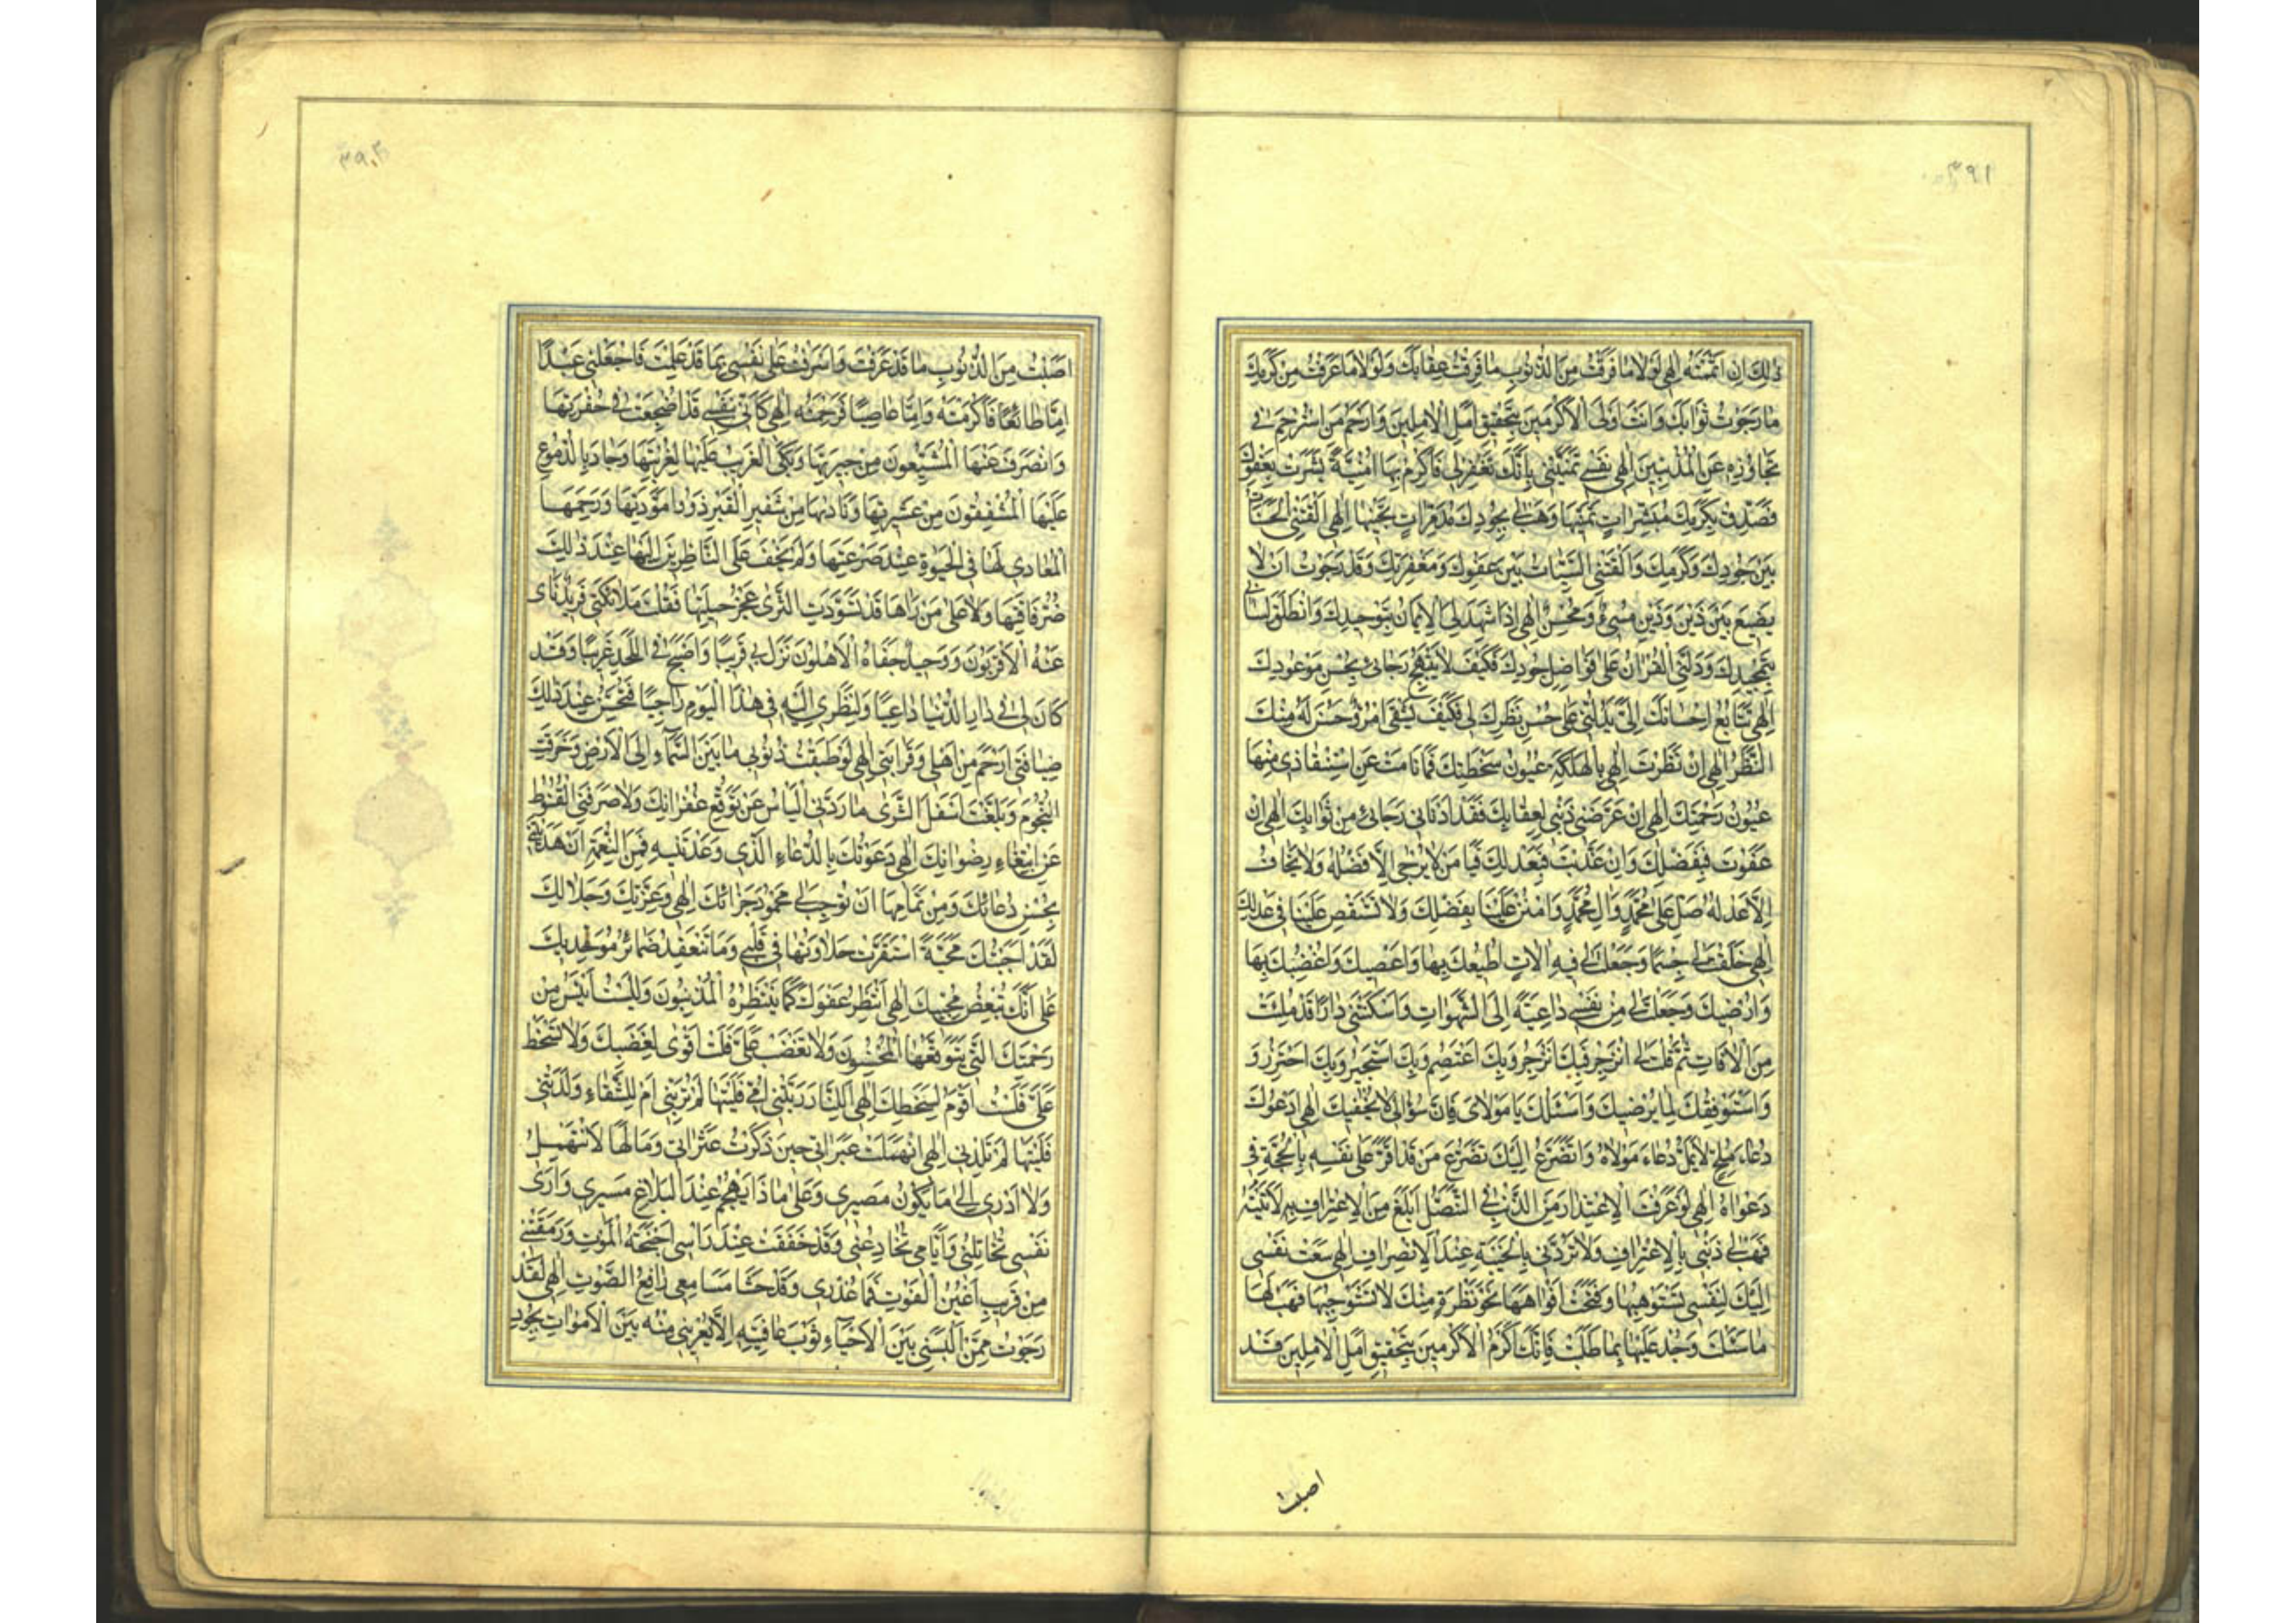 ۳۹۱
ذٰلِكَ اِنْ اَتْمَمْتَهُ اِلٰهِي لَوْلاٰ مٰا قَرَفْتُ مِنَ الذُّنُوبِ مٰا فَرِقْتُ عِقٰابَكَ وَلَوْلاٰ مٰا عَرَفْتُ مِنْ كَرَمِكَ
مٰا رَجَوْتُ ثَوٰابَكَ وَاَنْتَ اَوْلَى الْاَكْرَمِينَ بِتَحْقِيقِ اَمَلِ الْاٰمِلِينَ وَاَرْحَمُ مَنِ اسْتُرْحِمَ فِي
تَجٰاوُزِهِ عَنِ الْمُذْنِبِينَ اِلٰهِي نَفْسِي تُمَنِّينِي بِاَنَّكَ تَغْفِرُ لِي فَاَكْرِمْ بِهٰا اُمْنِيَّةً بَشَّرَتْ بِعَفْوِكَ
فَصَدِّقْ بِكَرَمِكَ مُبَشِّرٰاتِ تَمَنِّيهٰا وَهَبْ لِي بِجُودِكَ مُدَمِّرٰاتِ تَجَنِّيهٰا اِلٰهِي اَلْقَتْنِي الْحَسَنٰاتُ
بَيْنَ جُودِكَ وَكَرَمِكَ وَاَلْقَتْنِي السَّيِّئٰاتُ بَيْنَ عَفْوِكَ وَمَغْفِرَتِكَ وَقَدْ رَجَوْتُ اَنْ لاٰ
يَضِيعَ بَيْنَ ذَيْنَ وَذَيْنِ مُسِيءٌ وَمُحْسِنٌ اِلٰهِي اِذٰا شَهِدَ لِيَ الْاِيمٰانُ بِتَوْحِيدِكَ وَانْطَلَقَ لِسٰانِي
بِتَمْجِيدِكَ وَدَلَّنِي الْقُرْاٰنُ عَلٰى فَوٰاضِلِ جُودِكَ فَكَيْفَ لاٰ يَبْتَهِجُ رَجٰائِي بِحُسْنِ مَوْعُودِكَ
اِلٰهِي تَتٰابُعُ اِحْسٰانِكَ اِلَيَّ يَدُلُّنِي عَلٰى حُسْنِ نَظَرِكَ لِي فَكَيْفَ يَشْقٰى امْرُؤٌ حَسُنَ لَهُ مِنْكَ
النَّظَرُ اِلٰهِي اِنْ نَظَرَتْ اِلَيَّ بِالْهَلَكَةِ عُيُونُ سَخْطَتِكَ فَمٰا نٰامَتْ عَنِ اسْتِنْقٰاذِي مِنْهٰا
عُيُونُ رَحْمَتِكَ اِلٰهِي اِنْ عَرَّضَنِي ذَنْبِي لِعِقٰابِكَ فَقَدْ اَدْنٰانِي رَجٰائِي مِنْ ثَوٰابِكَ اِلٰهِي اِنْ
عَفَوْتَ فَبِفَضْلِكَ وَاِنْ عَذَّبْتَ فَبِعَدْلِكَ فَيٰا مَنْ لاٰ يُرْجٰى اِلاَّ فَضْلُهُ وَلاٰ يُخٰافُ
اِلاَّ عَدْلُهُ صَلِّ عَلٰى مُحَمَّدٍ وَاٰلِ مُحَمَّدٍ وَامْنُنْ عَلَيْنٰا بِفَضْلِكَ وَلاٰ تَسْتَقْصِ عَلَيْنٰا فِي عَدْلِكَ
اِلٰهِي خَلَقْتَ لِي جِسْمًا وَجَعَلْتَ لِي فِيهِ اٰلاٰتٍ اُطِيعُكَ بِهٰا وَاَعْصِيكَ وَاُغْضِبُكَ بِهٰا
وَاُرْضِيكَ وَجَعَلْتَ لِي مِنْ نَفْسِي دٰاعِيَةً اِلَى الشَّهَوٰاتِ وَاَسْكَنْتَنِي دٰارًا قَدْ مُلِئَتْ
مِنَ الْاٰفٰاتِ ثُمَّ قُلْتَ لِي انْزَجِرْ فَبِكَ اَنْزَجِرُ وَبِكَ اَعْتَصِمُ وَبِكَ اَسْتَجِيرُ وَبِكَ اَحْتَرِزُ وَ
وَاَسْتَوْفِقُكَ لِمٰا يُرْضِيكَ وَاَسْئَلُكَ يٰا مَوْلاٰيَ فَاِنَّ سُؤٰالِي لاٰ يُحْفِيكَ اِلٰهِي اَدْعُوكَ
دُعٰاءَ مُلِحٍّ لاٰ يَمَلُّ دُعٰاءَ مَوْلاٰهُ وَاَتَضَرَّعُ اِلَيْكَ تَضَرُّعَ مَنْ قَدْ اَقَرَّ عَلٰى نَفْسِهِ بِالْحُجَّةِ فِي
دَعْوٰاهُ اِلٰهِي لَوْ عَرَفْتُ الْاِعْتِذٰارَ مِنَ الذَّنْبِ فِي التَّنَصُّلِ اَبْلَغَ مِنَ الْاِعْتِرٰافِ بِهِ لَاَتَيْتُهُ
فَهَبْ لِي ذَنْبِي بِالْاِعْتِرٰافِ وَلاٰ تَرُدَّنِي بِالْخَيْبَةِ عِنْدَ الْاِنْصِرٰافِ اِلٰهِي سَعَتْ نَفْسِي
اِلَيْكَ لِنَفْسِي تَسْتَوْهِبُهٰا وَفَتَحَتْ اَفْوٰاهَهٰا نَحْوَ نَظْرَةٍ مِنْكَ لاٰ تَسْتَوْجِبُهٰا فَهَبْ لَهٰا
مٰا سَئَلَتْ وَجُدْ عَلَيْهٰا بِمٰا طَلَبَتْ فَاِنَّكَ اَكْرَمُ الْاَكْرَمِينَ بِتَحْقِيقِ اَمَلِ الْاٰمِلِينَ قَدْ
اصبت
اَصَبْتُ مِنَ الذُّنُوبِ مٰا قَدْ عَرَفْتَ وَاَسْرَفْتُ عَلٰى نَفْسِي بِمٰا قَدْ عَلِمْتَ فَاجْعَلْنِي عَبْدًا
اِمّٰا طٰائِعًا فَاَكْرَمْتَهُ وَاِمّٰا عٰاصِيًا فَرَحِمْتَهُ اِلٰهِي كَاَنِّي بِنَفْسِي قَدْ اُضْجِعَتْ فِي حُفْرَتِهٰا
وَانْصَرَفَ عَنْهَا الْمُشَيِّعُونَ مِنْ جِيرَتِهٰا وَبَكَى الْغَرِيبُ عَلَيْهٰا لِغُرْبَتِهٰا وَجٰادَ بِالدُّمُوعِ
عَلَيْهَا الْمُشْفِقُونَ مِنْ عَشِيرَتِهٰا وَنٰادٰاهٰا مِنْ شَفِيرِ الْقَبْرِ ذَوُوا مَوَدَّتِهٰا وَرَحِمَهَا
الْمُعٰادِي لَهٰا فِي الْحَيٰوةِ عِنْدَ صَرْعَتِهٰا وَلَمْ يَخْفَ عَلَى النّٰاظِرِينَ اِلَيْهٰا عِنْدَ ذٰلِكَ
ضُرُّ فٰاقَتِهٰا وَلاٰ عَلٰى مَنْ رَاٰهٰا قَدْ تَوَسَّدَتِ الثَّرٰى عَجْزُ حِيلَتِهٰا فَقُلْتَ مَلاٰئِكَتِي فَرِيدٌ نَاٰى
عَنْهُ الْاَقْرَبُونَ وَوَحِيدٌ جَفٰاهُ الْاَهْلُونَ نَزَلَ بِي قَرِيبًا وَاَصْبَحَ فِي اللَّحْدِ غَرِيبًا وَقَدْ
كٰانَ لِي فِي دٰارِ الدُّنْيٰا دٰاعِيًا وَلِنَظَرِي اِلَيْهِ فِي هٰذَا الْيَوْمِ رٰاجِيًا فَتُحْسِنُ عِنْدَ ذٰلِكَ
ضِيٰافَتِي اَرْحَمَ مِنْ اَهْلِي وَقَرٰابَتِي اِلٰهِي لَوْ طَبَّقَتْ ذُنُوبِي مٰا بَيْنَ السَّمٰاءِ اِلَى الْاَرْضِ وَخَرَقَتِ
النُّجُومَ وَبَلَغَتْ اَسْفَلَ الثَّرٰى مٰا رَدَّنِي الْيَاْسُ عَنْ تَوَقُّعِ غُفْرٰانِكَ وَلاٰ صَرَفَنِي الْقُنُوطُ
عَنِ ابْتِغٰاءِ رِضْوٰانِكَ اِلٰهِي دَعَوْتُكَ بِالدُّعٰاءِ الَّذِي وَعَدْتَنِيهِ فَمِنَ النِّعْمَةِ اَنْ هَدَيْتَنِي
بِحُسْنِ دُعٰائِكَ وَمِنْ تَمٰامِهٰا اَنْ تُوجِبَ لِي مَحْمُودَ جَزٰائِكَ اِلٰهِي وَعِزَّتِكَ وَجَلاٰلِكَ
لَقَدْ اَحْبَبْتُكَ مَحَبَّةً اسْتَقَرَّتْ حَلاٰوَتُهٰا فِي قَلْبِي وَمٰا تَنْعَقِدُ ضَمٰائِرُ مُوَحِّدِيكَ
عَلٰى اَنَّكَ تُبْغِضُ مُحِبِّيكَ اِلٰهِي اَنْتَظِرُ عَفْوَكَ كَمٰا يَنْتَظِرُهُ الْمُذْنِبُونَ وَلَسْتُ اَيْئَسُ مِنْ
رَحْمَتِكَ الَّتِي يَتَوَقَّعُهَا الْمُحْسِنُونَ وَلاٰ تَغْضَبْ عَلَيَّ فَلَسْتُ اَقْوٰى لِغَضَبِكَ وَلاٰ تَسْخَطْ
عَلَيَّ فَلَسْتُ اَقُومُ لِسَخَطِكَ اِلٰهِي اَلِلنّٰارِ رَبَّتْنِي اُمِّي فَلَيْتَهٰا لَمْ تُرَبِّنِي اَمْ لِلشَّقٰاءِ وَلَدَتْنِي
فَلَيْتَهٰا لَمْ تَلِدْنِي اِلٰهِي انْهَمَلَتْ عَبَرٰاتِي حِينَ ذَكَرْتُ عَثَرٰاتِي وَمٰا لَهٰا لاٰ تَنْهَمِلُ
وَلاٰ اَدْرِي اِلٰى مٰا يَكُونُ مَصِيرِي وَعَلٰى مٰا ذٰا يَهْجُمُ عِنْدَ الْبَلاٰغِ مَسِيرِي وَاَرٰى
نَفْسِي تُخٰاتِلُنِي وَاَيّٰامِي تُخٰادِعُنِي وَقَدْ خَفَقَتْ عِنْدَ رَاْسِي اَجْنِحَةُ الْمَوْتِ وَرَمَقَتْنِي
مِنْ قَرِيبٍ اَعْيُنُ الْفَوْتِ فَمٰا عُذْرِي وَقَدْ حَشٰا مَسٰامِعِي رٰافِعُ الصَّوْتِ اِلٰهِي لَقَدْ
رَجَوْتُ مِمَّنْ اَلْبَسَنِي بَيْنَ الْاَحْيٰاءِ ثَوْبَ عٰافِيَتِهِ اَلاَّ يُعْرِيَنِي مِنْهُ بَيْنَ الْاَمْوٰاتِ بِجُودِ